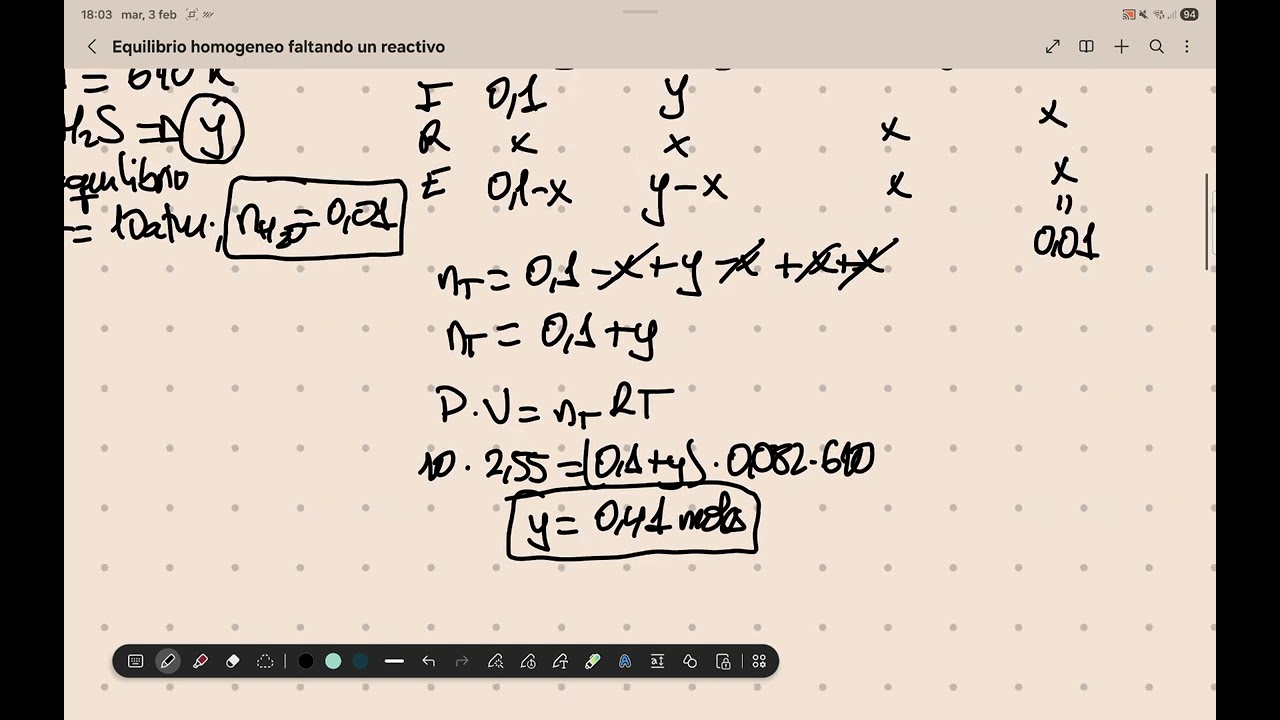 18:03 mar, 3 feb 94
Equilibrio homogeneo faltando un reactivo
= 610 K
H₂S ⇒ y
equilibrio
= 10 atm; nH₂O = 0,01
I 0,1 y
R x x x x
E 0,1-x y-x x x
=
0,01
nT = 0,1 - x + y - x + x + x
nT = 0,1 + y
P·V = nT RT
10 · 2,55 = (0,1 + y) · 0,082 · 610
y = 0,41 moles